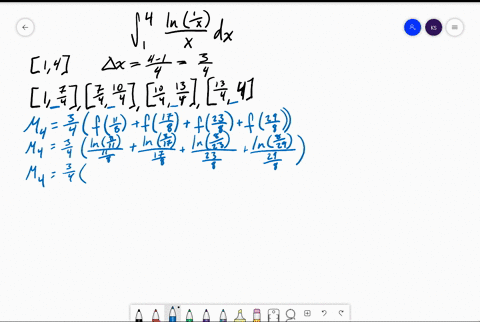 ∫₁⁴ ln(1/x)/x dx
[1,4] Δx = 4-1/4 = 3/4
[1, 7/4], [7/4, 10/4], [10/4, 13/4], [13/4, 4]
M₄ = 3/4 (f(11/8) + f(17/8) + f(23/8) + f(29/8))
M₄ = 3/4 (ln(8/11)/(11/8) + ln(8/17)/(17/8) + ln(8/23)/(23/8) + ln(8/29)/(29/8))
M₄ = 3/4 (
KS